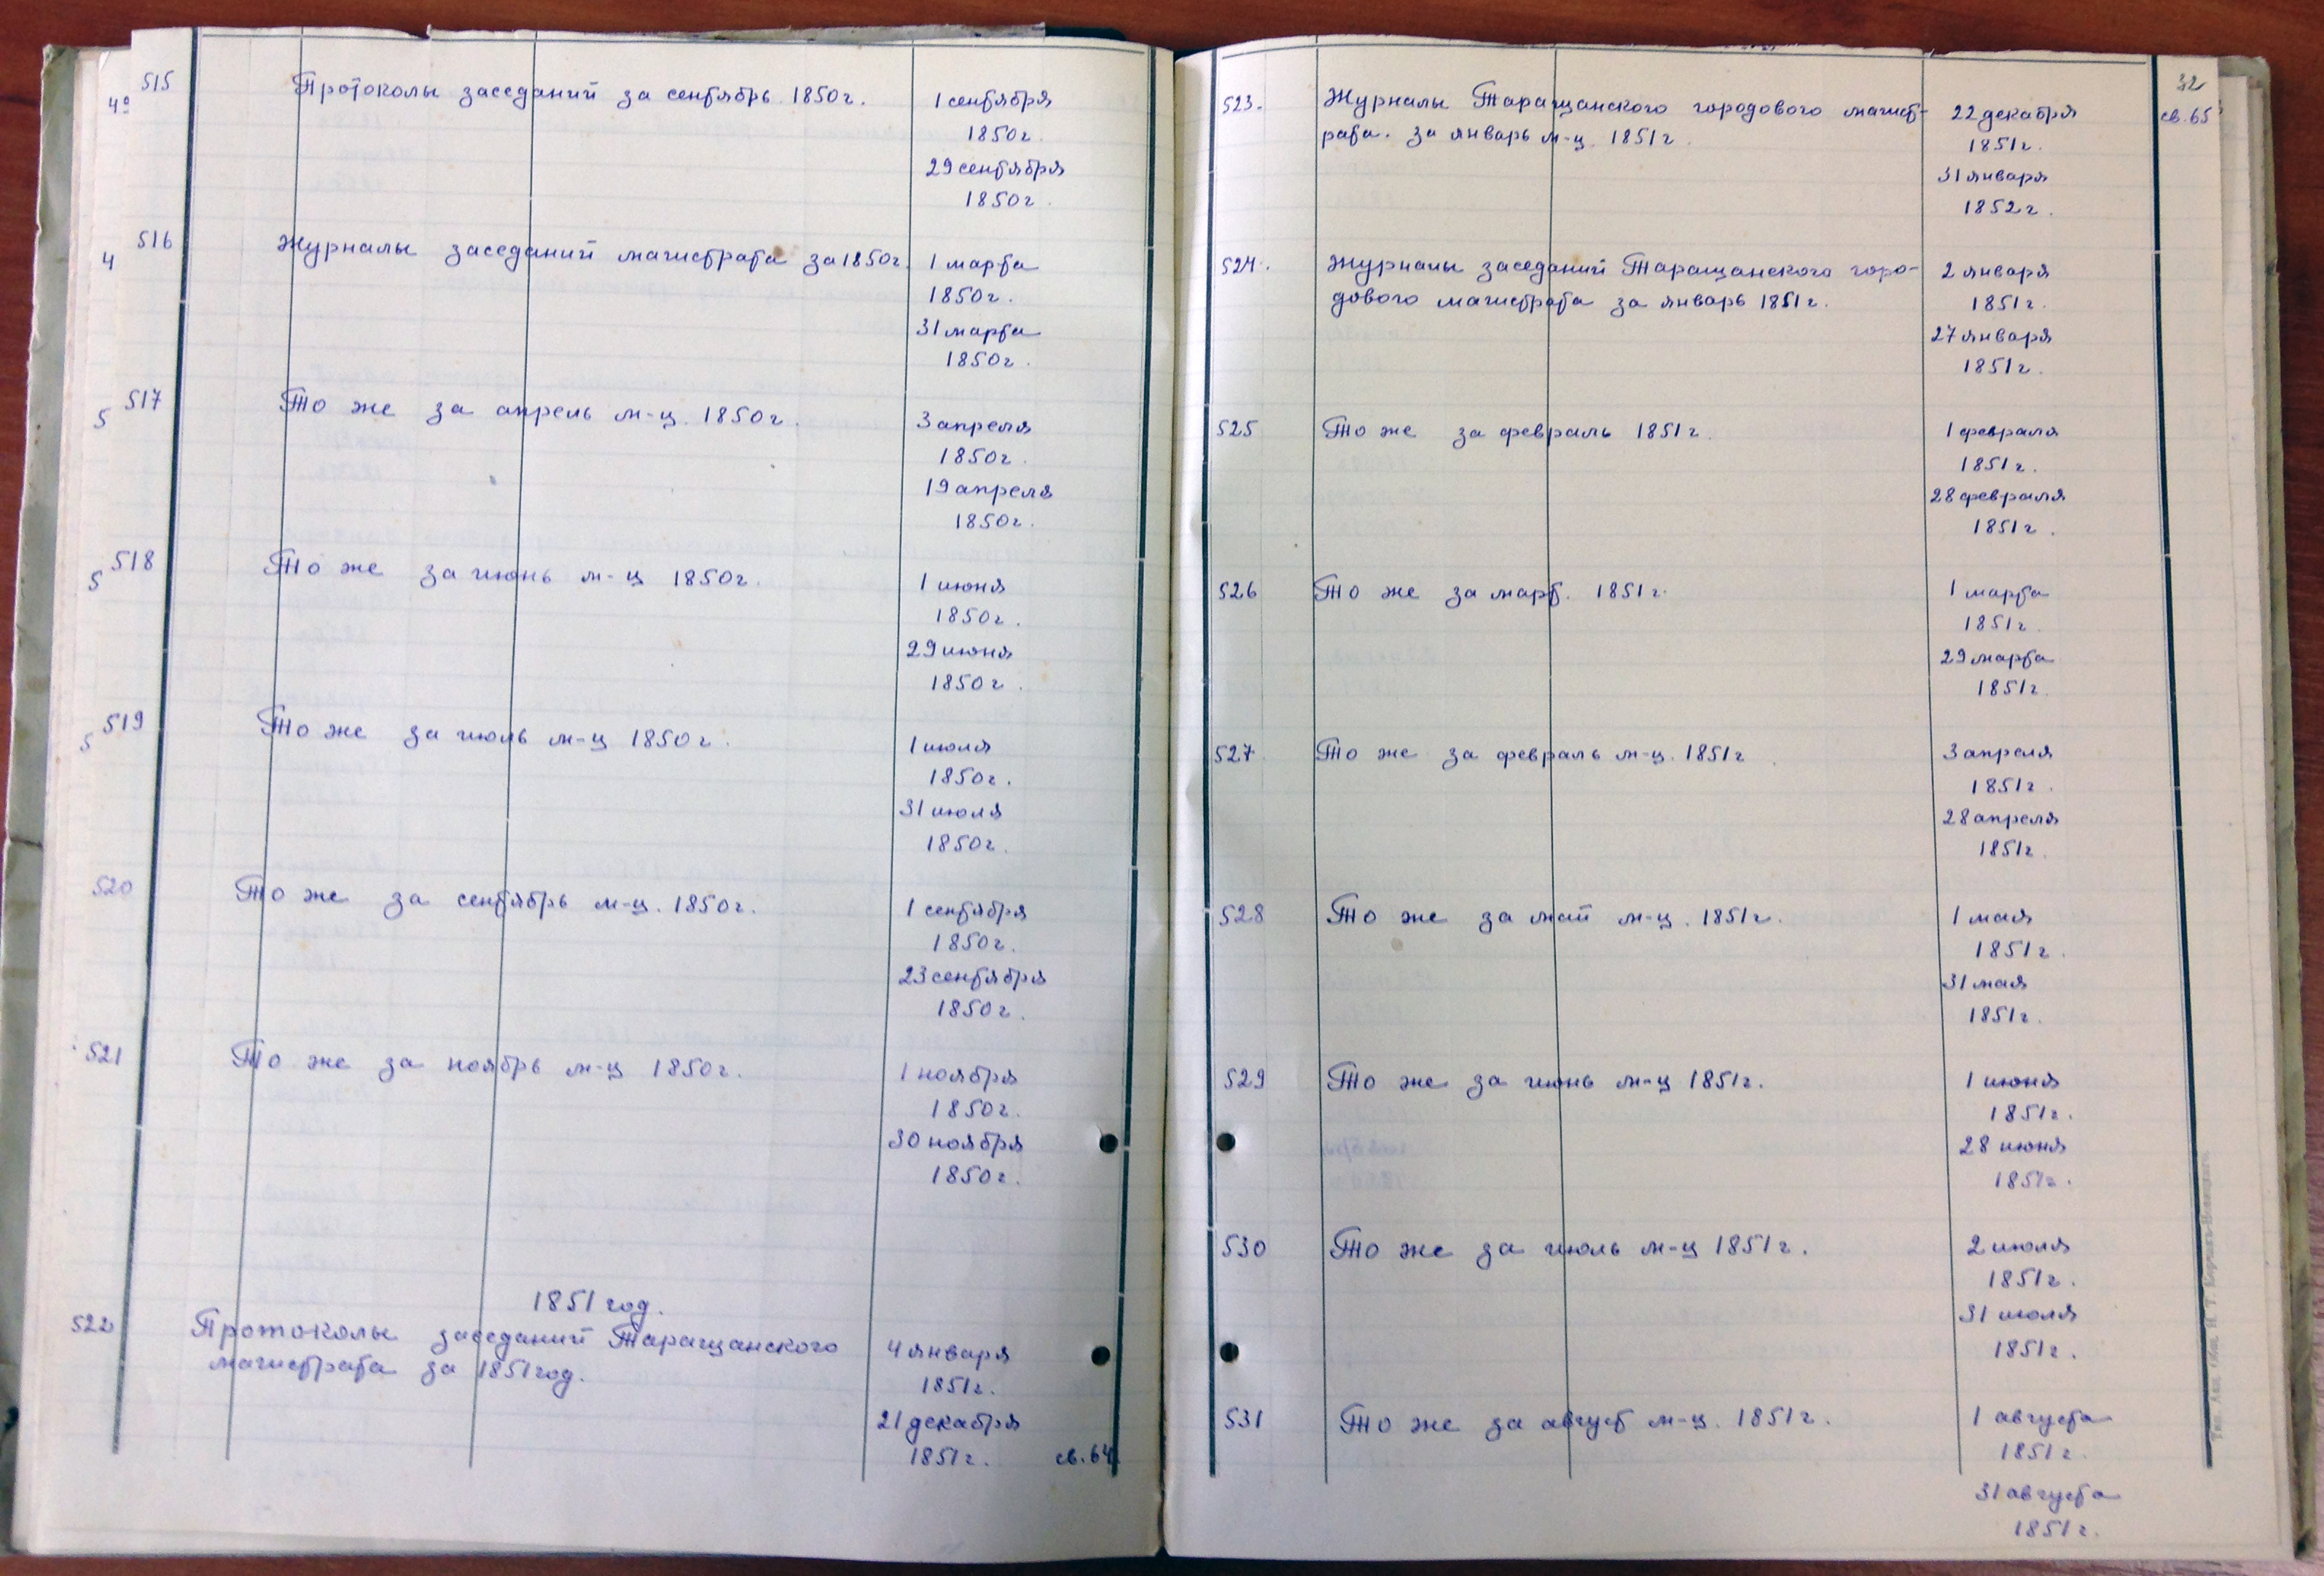 515
4º
Протоколы заседаний за сентябрь 1850г.
1 сентября
1850г.
29 сентября
1850г.
516
4
Журналы заседаний магистрата за 1850г.
1 марта
1850г.
31 марта
1850г.
517
5
То же за апрель м-ц. 1850г.
3 апреля
1850г.
19 апреля
1850г.
518
5
То же за июнь м-ц 1850г.
1 июня
1850г.
29 июня
1850г.
519
5
То же за июль м-ц 1850г.
1 июля
1850г.
31 июля
1850г.
520
То же за сентябрь м-ц. 1850г.
1 сентября
1850г.
23 сентября
1850г.
521
То же за ноябрь м-ц 1850г.
1 ноября
1850г.
30 ноября
1850г.
1851 год.
522
Протоколы заседаний Таращанского
магистрата за 1851год.
4 января
1851г.
21 декабря
1851г. св.64
32
523.
Журналы Таращанского городового магист-
рата. за январь м-ц. 1851г
22 декабря
св.65
1851г.
31 января
1852г.
524.
Журналы заседаний Таращанского горо-
дового магистрата за январь 1851г.
2 января
1851г.
27 января
1851г.
525
То же за февраль 1851г.
1 февраля
1851г.
28 февраля
1851г.
526
То же за март. 1851г.
1 марта
1851г.
29 марта
1851г.
527
То же за февраль м-ц. 1851г
3 апреля
1851г.
28 апреля
1851г.
528
То же за май м-ц. 1851г.
1 мая
1851г.
31 мая
1851г.
529
То же за июнь м-ц 1851г.
1 июня
1851г.
28 июня
1851г.
530
То же за июль м-ц 1851г.
2 июля
1851г.
31 июля
1851г.
531
То же за август м-ц. 1851г.
1 августа
1851г.
31 августа
1851г.